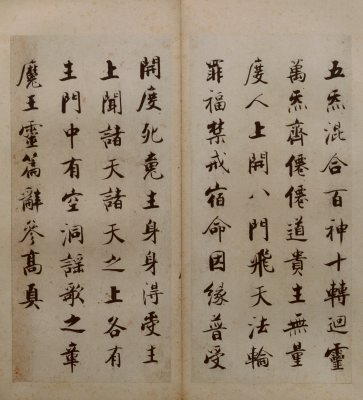 五炁混合百神十轉迴靈
萬炁齊僊僊道貴生無量
度人上開八門飛天法輪
罪福禁戒宿命因緣普受
開度死䰟生身身得受生
上聞諸天諸天之上各有
生門中有空洞謡歌之章
魔王靈篇辭參髙真